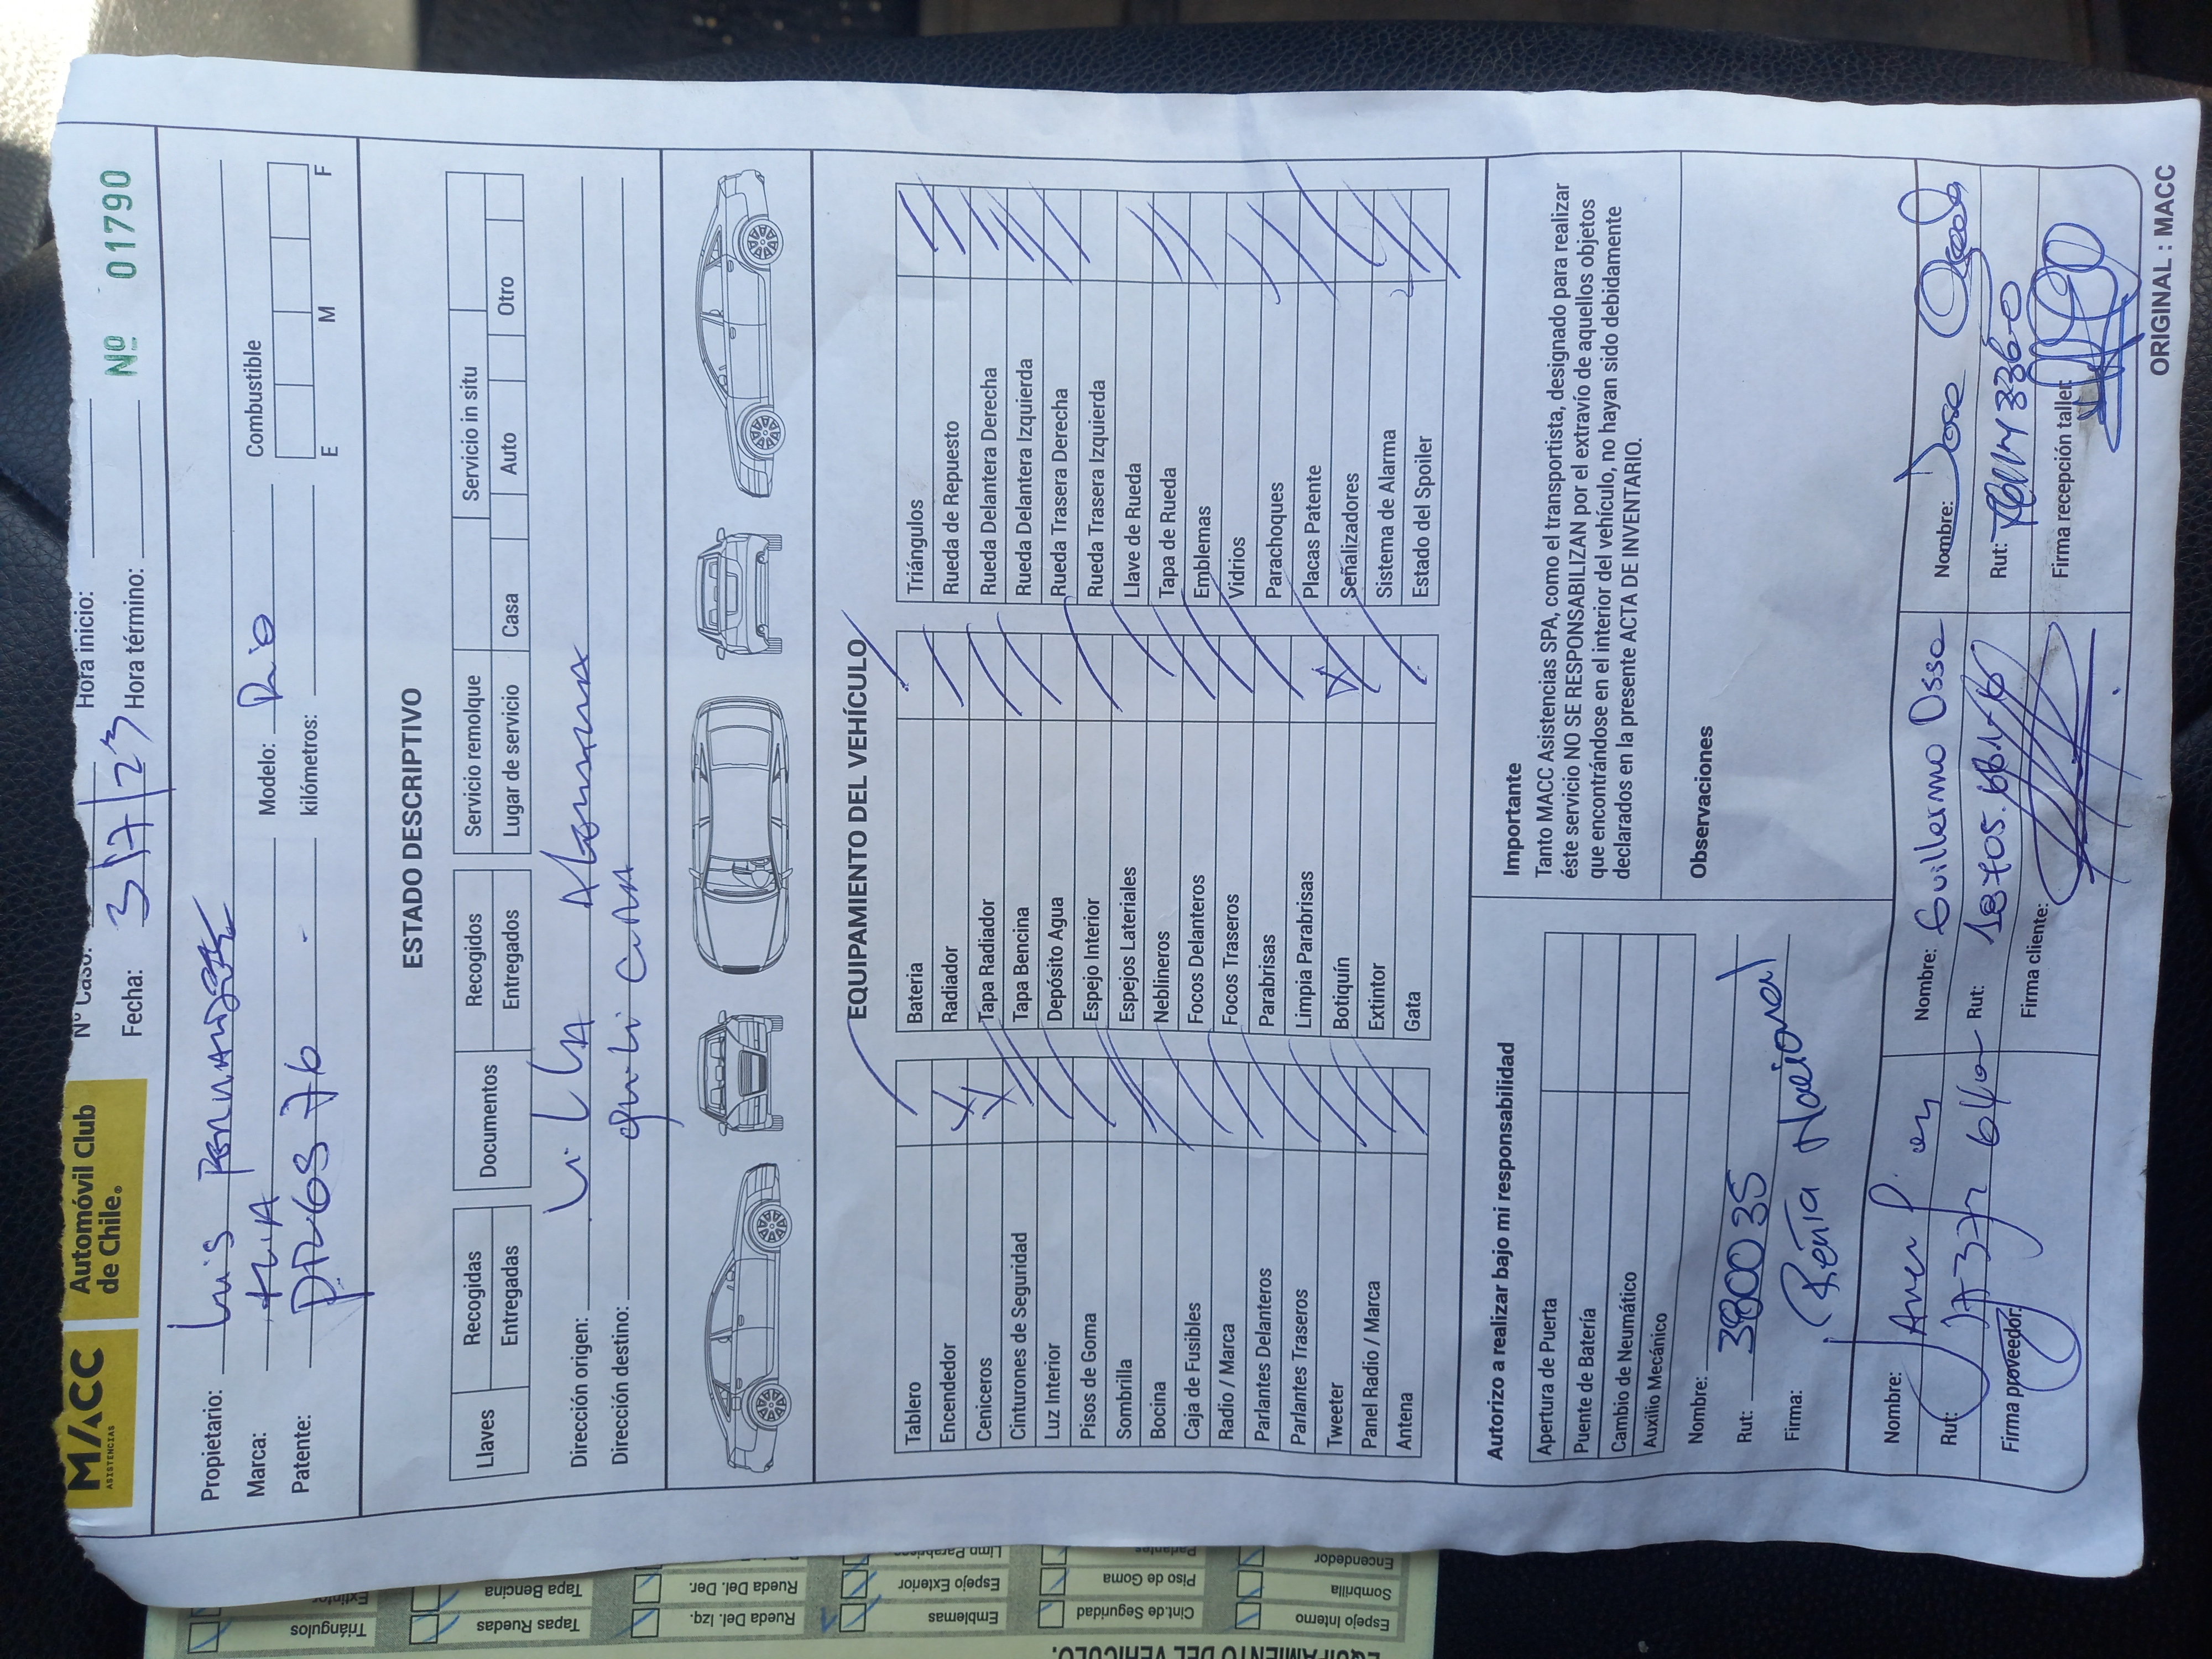 MACC
ASISTENCIAS
Automóvil Club
de Chile®
Nº Caso:
Hora inicio:
Nº 01790
Fecha: 3/7/23 Hora término:
Propietario: Luis
Marca: Modelo: Rio Combustible
Patente: kilómetros: E M F
ESTADO DESCRIPTIVO
Llaves Recogidas Documentos Recogidos Servicio remolque Servicio in situ
Entregadas Entregados Lugar de servicio Casa Auto Otro
Dirección origen: Villa Alemana
Dirección destino:
EQUIPAMIENTO DEL VEHÍCULO
Tablero Bateria Triángulos
Encendedor Radiador Rueda de Repuesto
Ceniceros Tapa Radiador Rueda Delantera Derecha
Cinturones de Seguridad Tapa Bencina Rueda Delantera Izquierda
Luz Interior Depósito Agua Rueda Trasera Derecha
Pisos de Goma Espejo Interior Rueda Trasera Izquierda
Sombrilla Espejos Lateriales Llave de Rueda
Bocina Neblineros Tapa de Rueda
Caja de Fusibles Focos Delanteros Emblemas
Radio / Marca Focos Traseros Vidrios
Parlantes Delanteros Parabrisas Parachoques
Parlantes Traseros Limpia Parabrisas Placas Patente
Tweeter Botiquín Señalizadores
Panel Radio / Marca Extintor Sistema de Alarma
Antena Gata Estado del Spoiler
Autorizo a realizar bajo mi responsabilidad
Apertura de Puerta
Puente de Batería
Cambio de Neumático
Auxilio Mecánico
Nombre:
Rut: 3800 35
Firma: (Renta Nacional)
Importante
Tanto MACC Asistencias SPA, como el transportista, designado para realizar
éste servicio NO SE RESPONSABILIZAN por el extravío de aquellos objetos
que encontrándose en el interior del vehículo, no hayan sido debidamente
declarados en la presente ACTA DE INVENTARIO.
Observaciones
Nombre: Nombre: Guillermo Ossa Nombre: Jose
Rut: Rut: Rut:
Firma proveedor: Firma cliente: Firma recepción taller:
ORIGINAL : MACC
EQUIPAMIENTO DEL VEHICULO.
Espejo Interno Cint.de Seguridad Emblemas Rueda Del. Izq. Tapas Ruedas Triángulos
Sombrilla Piso de Goma Espejo Exterior Rueda Del. Der. Tapa Bencina Extintor
Encendedor Parlantes